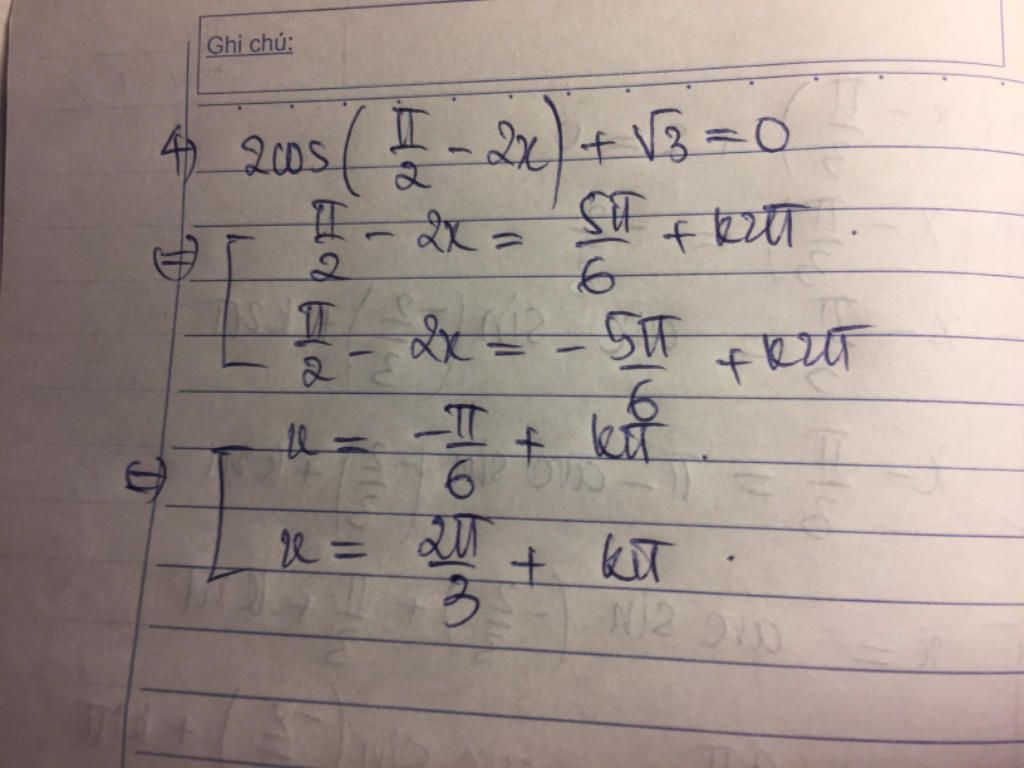 Ghi chú:
4) 2cos(π/2 - 2x) + √3 = 0
⇔ [ π/2 - 2x = 5π/6 + k2π .
π/2 - 2x = -5π/6 + k2π
⇔ [ x = -π/6 + kπ .
x = 2π/3 + kπ .